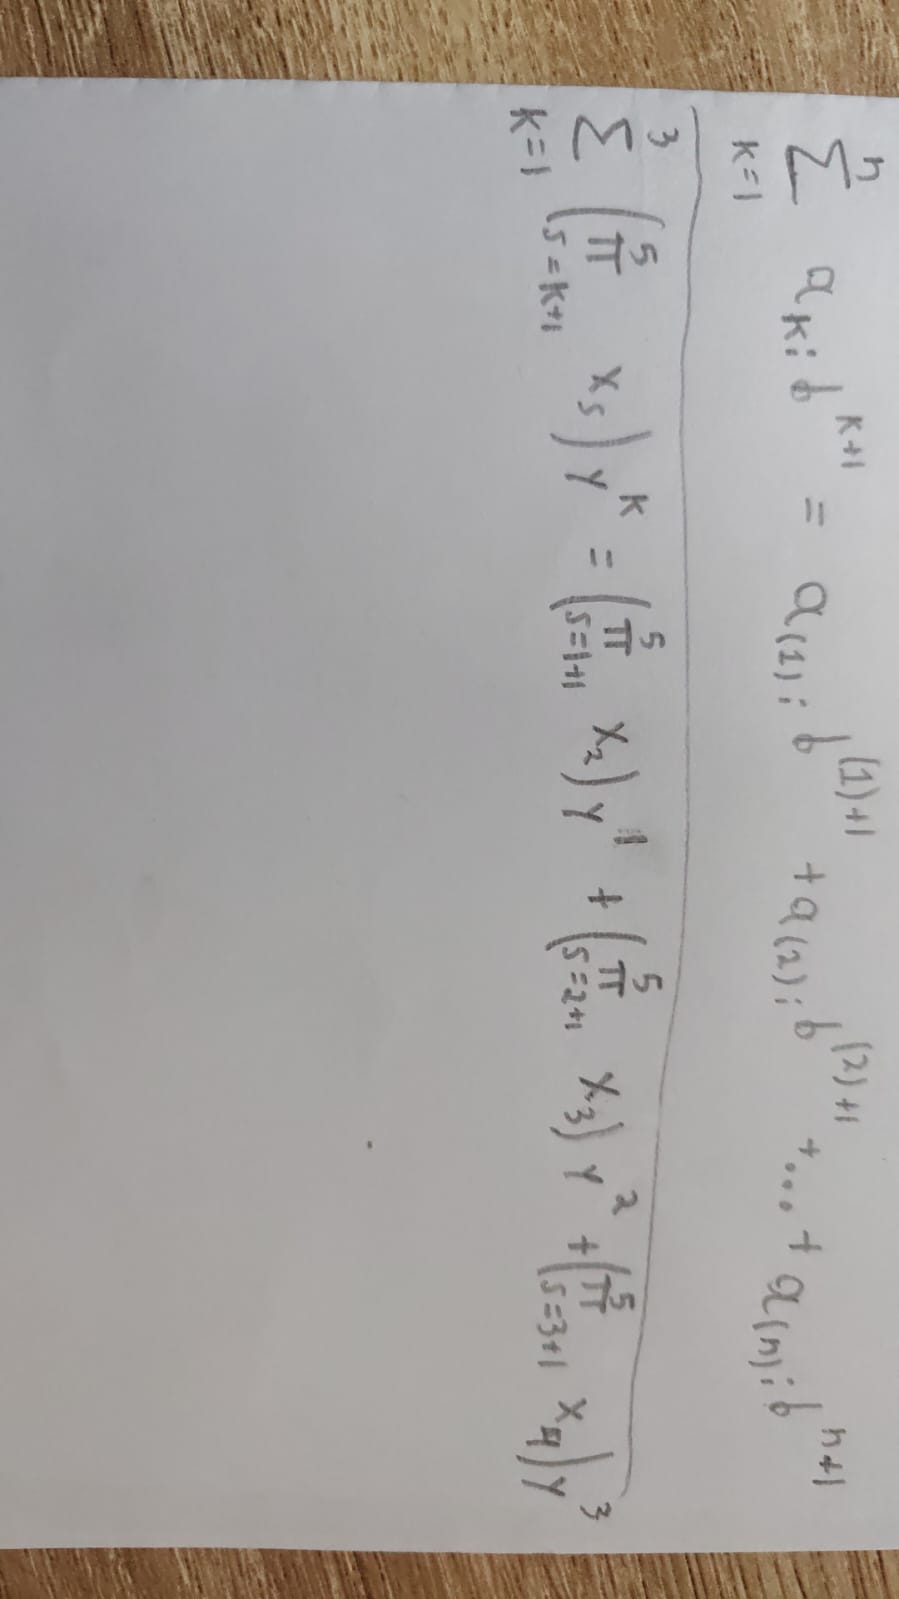 ∑_{k=1}^{n} a_{k i} b^{k+1} = a_{(1) i} b^{(1)+1} + a_{(2) i} b^{(2)+1} + ... + a_{(n) i} b^{n+1}
∑_{k=1}^{3} (π_{s=k+1}^{5} x_s) y^k = (π_{s=1+1}^{5} x_2) y^1 + (π_{s=2+1}^{5} x_3) y^2 + (π_{s=3+1}^{5} x_4) y^3